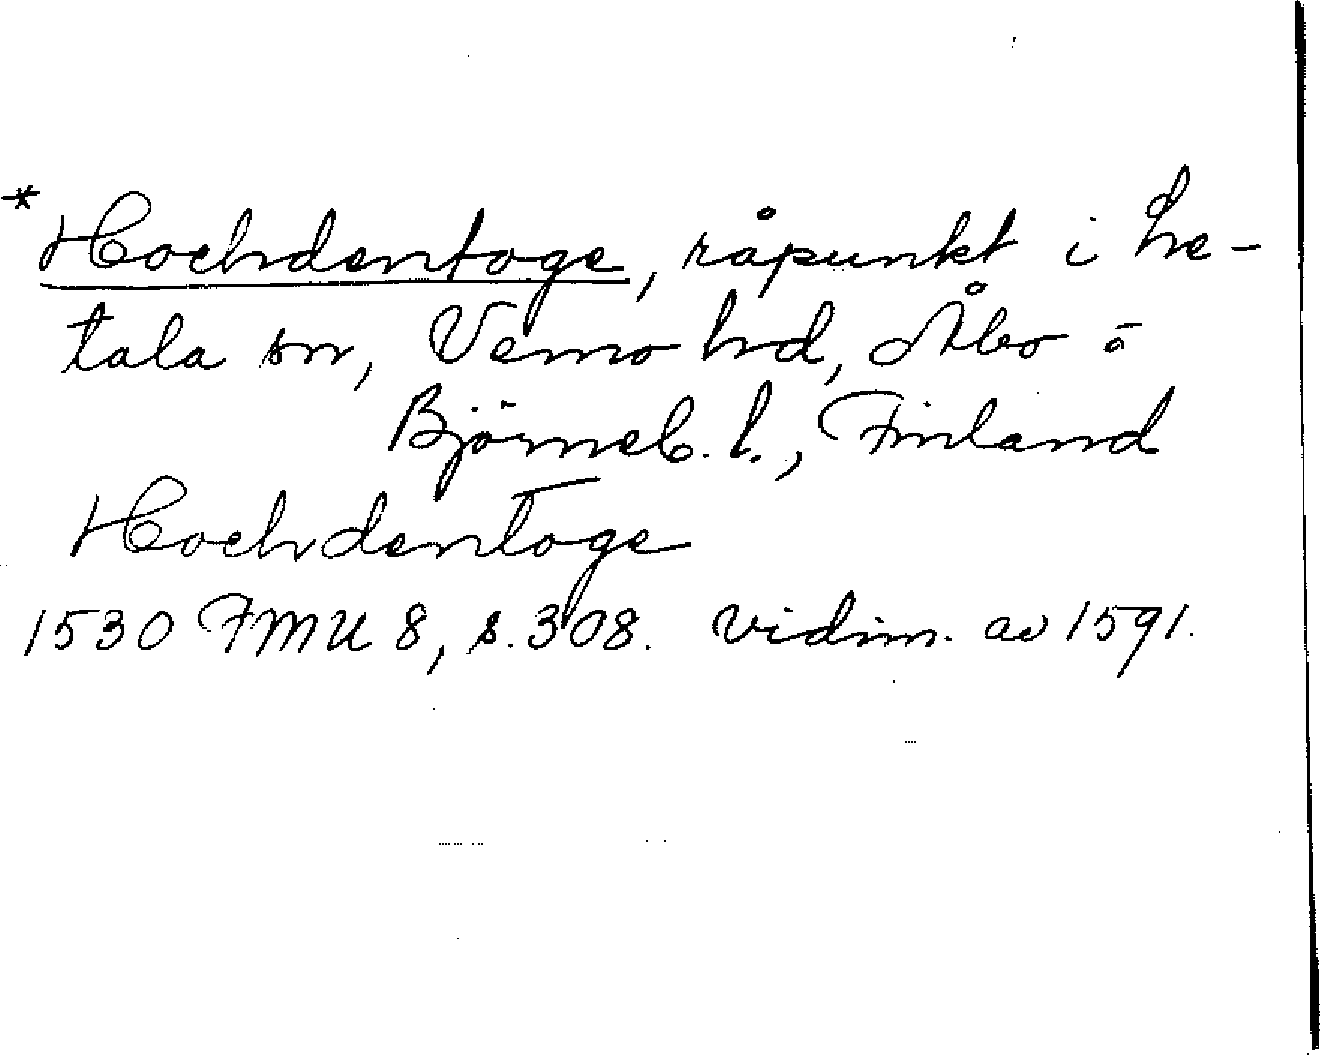 *
Hochdentoge, råpunkt i Le-
tala sn, Vemo hd, Åbo-
Björneb. l., Finland
Hochdentoge
1530 FMU 8, s. 308. Vidim. av 1591.